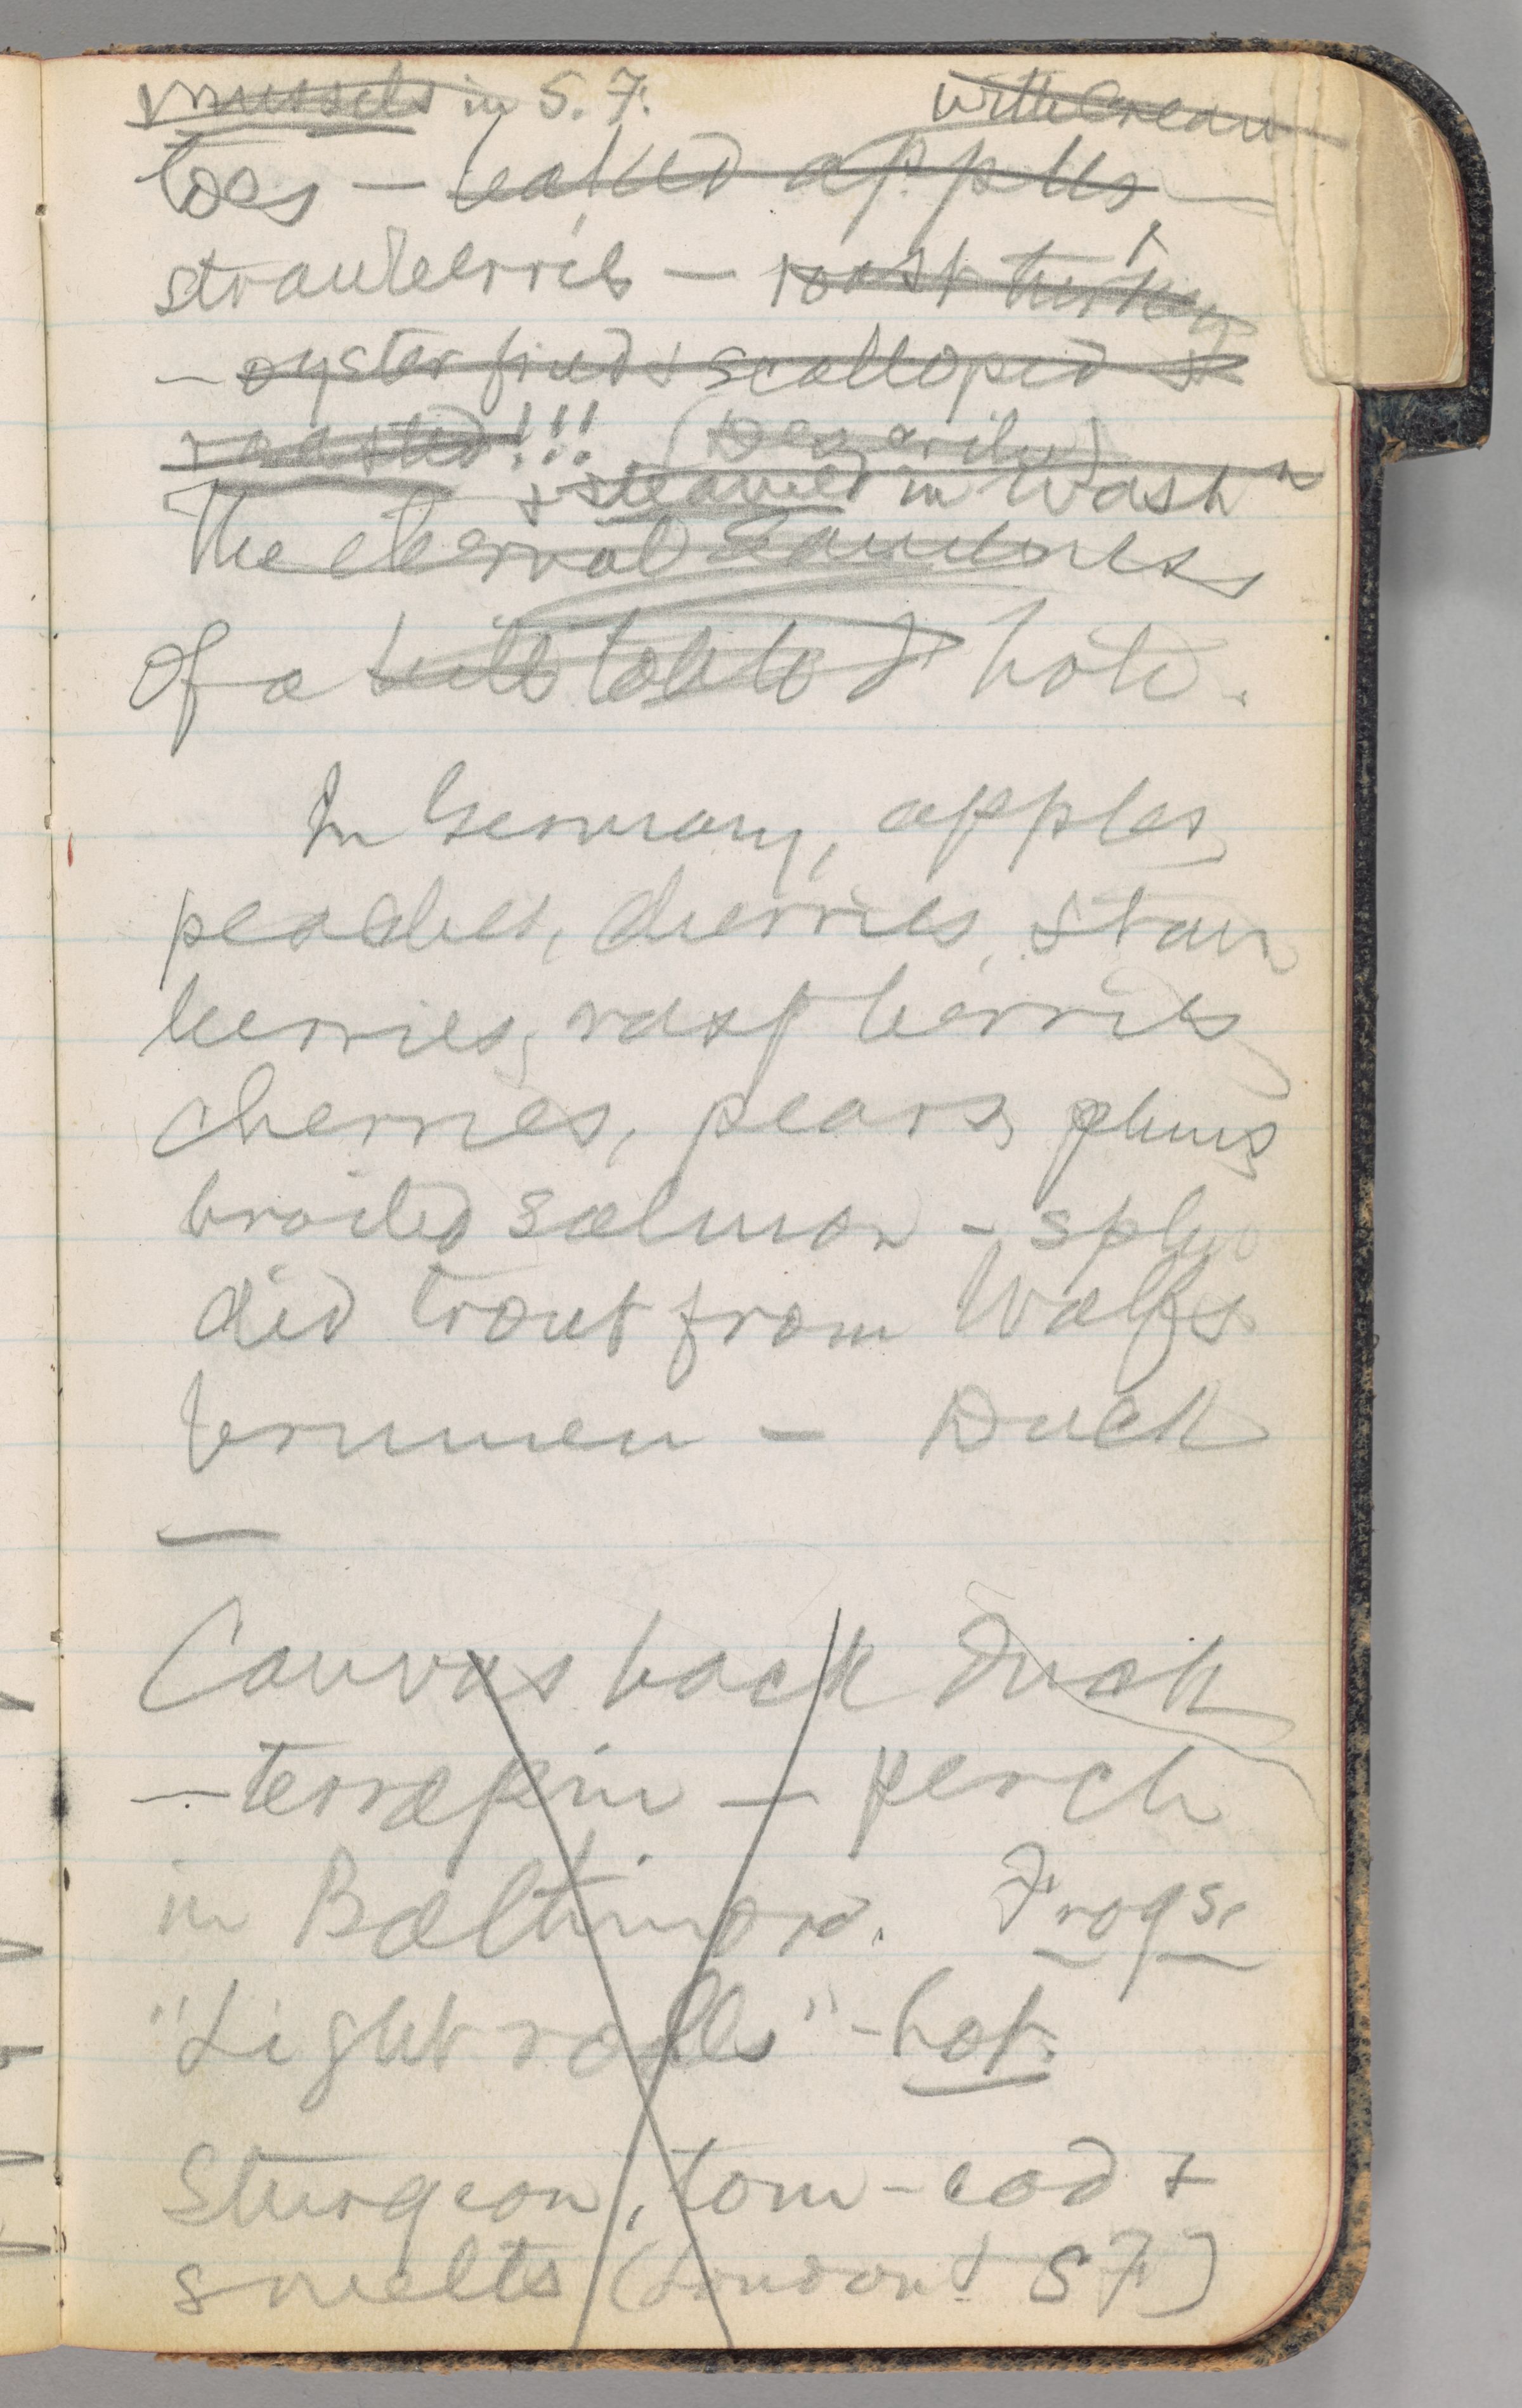 mussels in S. F.
with cream
toes — baked apples —
strawberries — roast turkey
— oyster fried & scalloped &
roasted!!!
& steamed in Wash^n
The eternal sameness
of a table d' hote.
In Germany, apples,
peaches, cherries, straw
berries, raspberries,
cherries, pears, plums,
broiled salmon — splen
did trout from Wolfs
brunnen — Duck
—
Canvas back duck
— terrapin — perch
in Baltimore. Frogs.
"Light rolls" - hot.
Sturgeon, tom-cod &
smelts (London & S F)